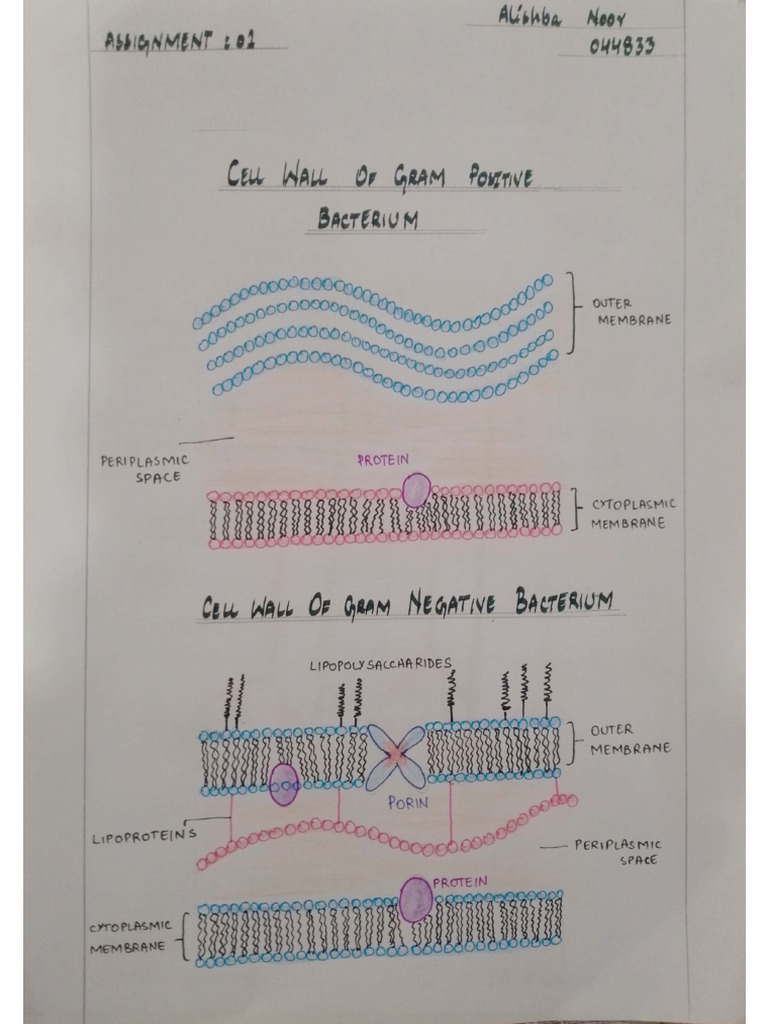 Alishba Noor
ASSIGNMENT : 01
044833
CELL WALL OF GRAM POSITIVE
BACTERIUM
OUTER
MEMBRANE
PERIPLASMIC
SPACE
PROTEIN
CYTOPLASMIC
MEMBRANE
CELL WALL OF GRAM NEGATIVE BACTERIUM
LIPOPOLYSACCHARIDES
OUTER
MEMBRANE
PORIN
LIPOPROTEINS
PERIPLASMIC
SPACE
PROTEIN
CYTOPLASMIC
MEMBRANE